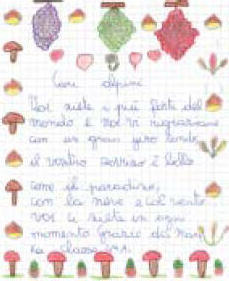 Cari alpini
Voi siete i più forti del
mondo e noi vi ringraziamo
con un gran giro tondo,
il vostro sorriso è bello
come il paradiso,
con la neve e col vento
voi ci siete in ogni
momento Grazie dei
classe